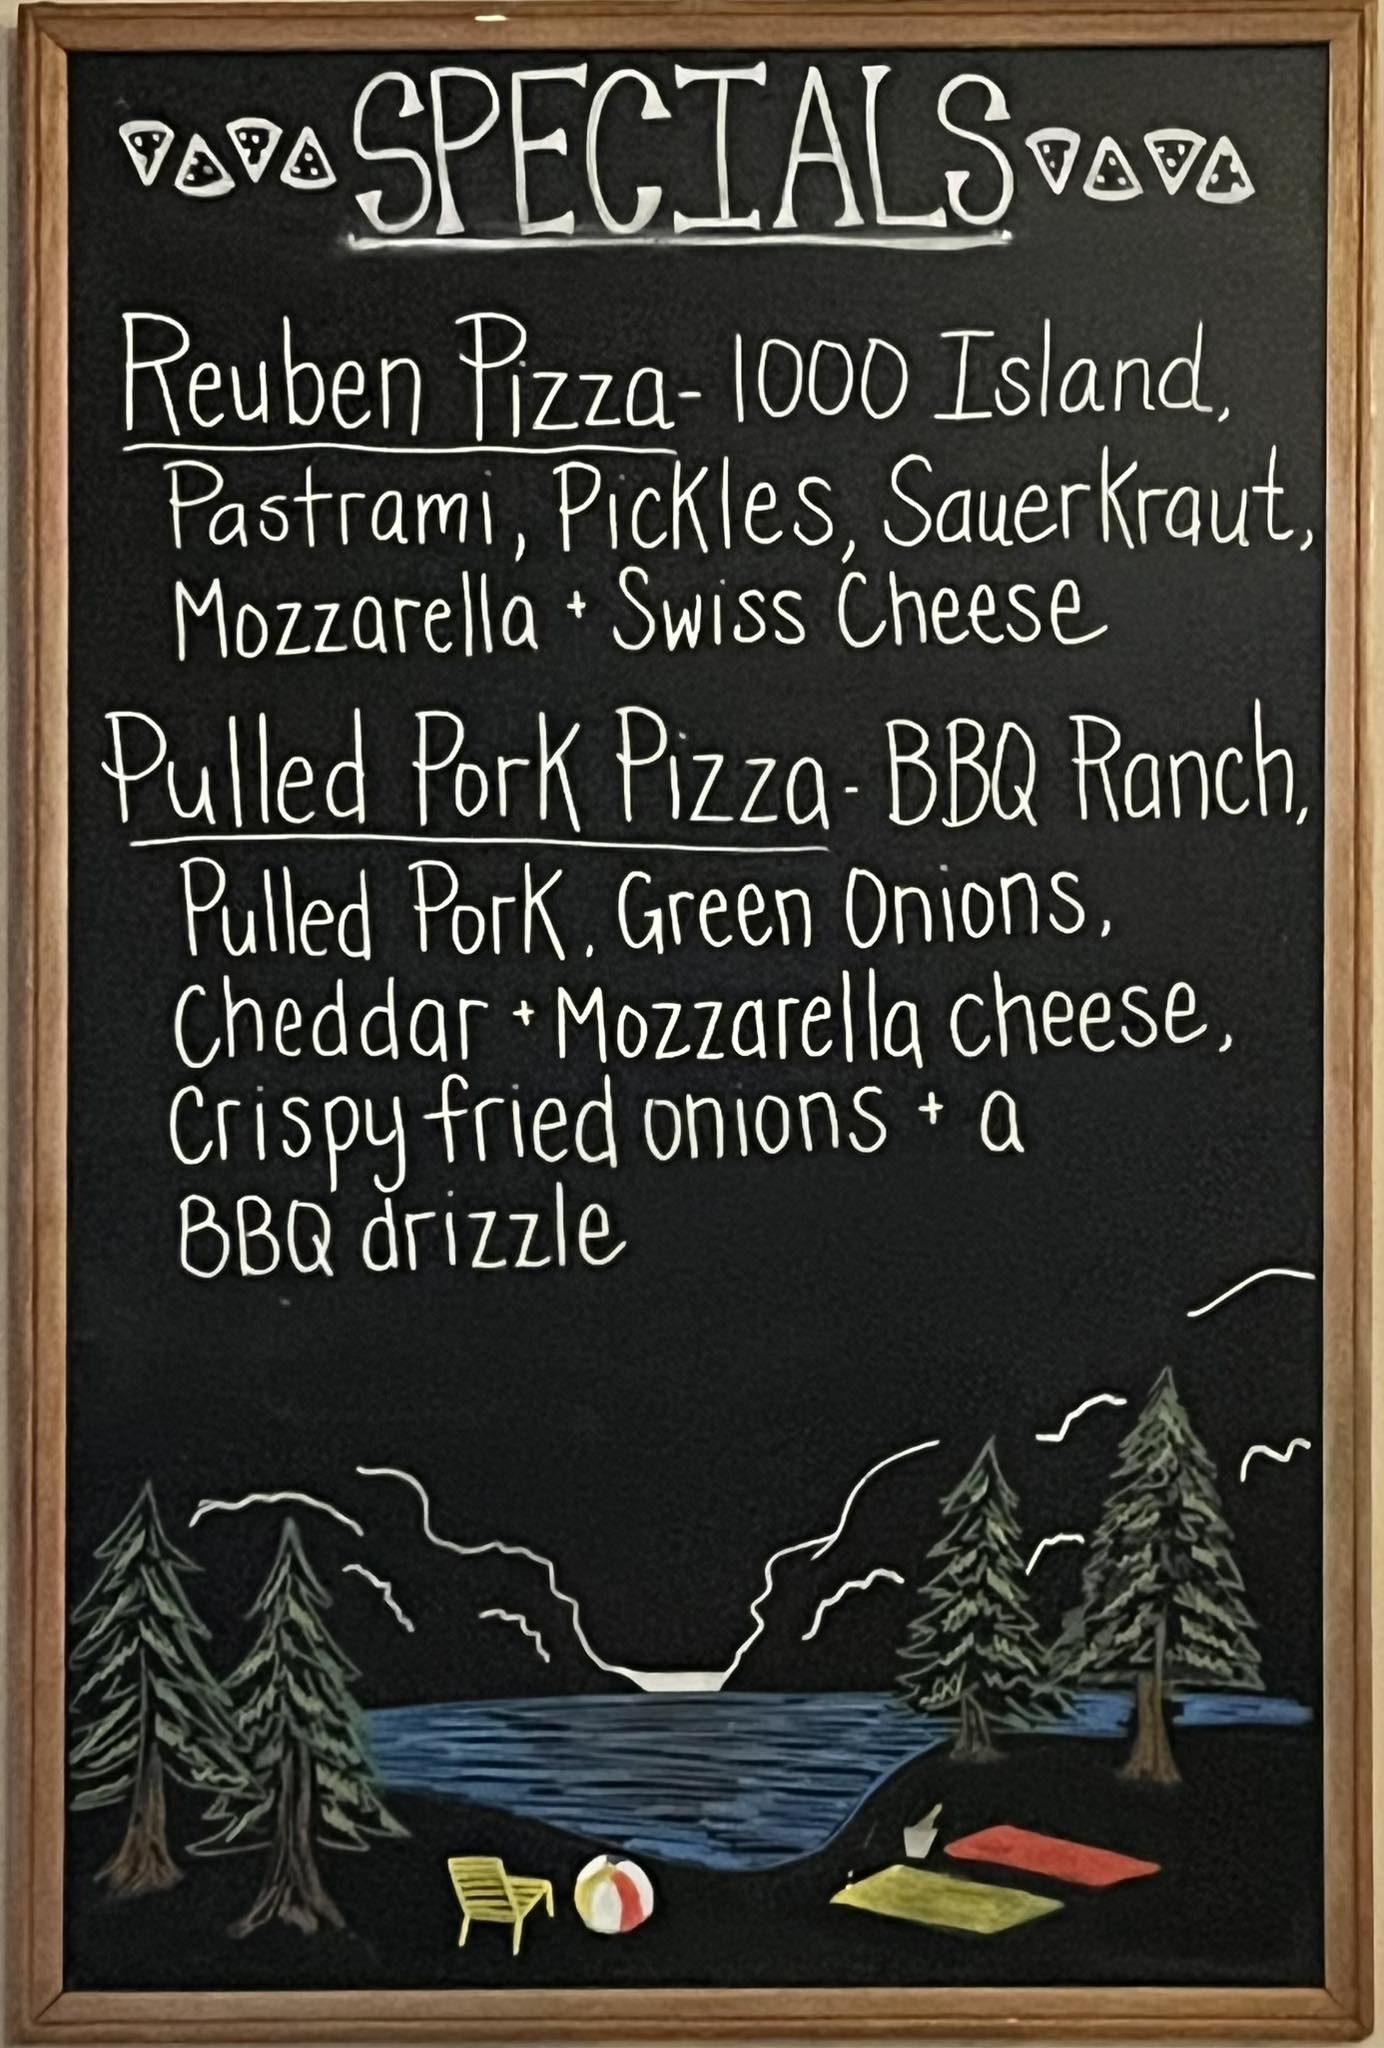 SPECIALS
Reuben Pizza - 1000 Island,
Pastrami, Pickles, Sauerkraut,
Mozzarella + Swiss Cheese
Pulled Pork Pizza - BBQ Ranch,
Pulled Pork, Green Onions,
Cheddar + Mozzarella cheese,
Crispy fried onions + a
BBQ drizzle